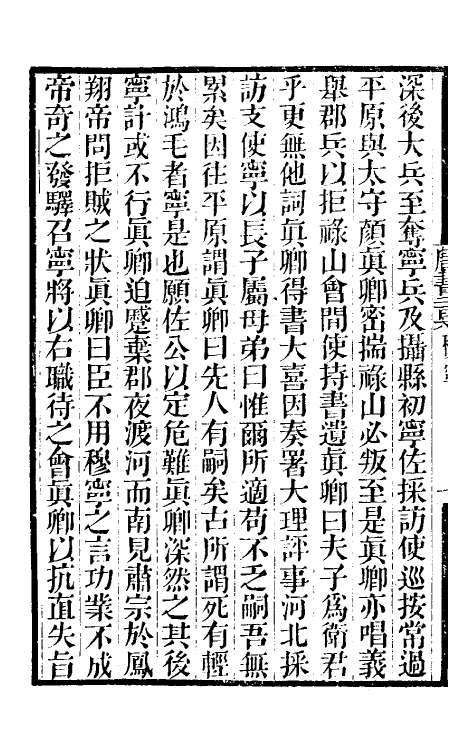 深後大兵至奪寧兵及攝縣初寧佐採訪使巡按常過
平原與太守顔眞卿密揣祿山必叛至是眞卿亦唱義
舉郡兵以拒祿山會間使持書遺眞卿曰夫子爲衛君
乎更無他詞眞卿得書大喜因奏署大理評事河北採
訪支使寧以長子屬母弟曰惟爾所適苟不乏嗣吾無
累矣因往平原謂眞卿曰先人有嗣矣古所謂死有輕
於鴻毛者寧是也願佐公以定危難眞卿深然之其後
寧計或不行眞卿迫蹙棄郡夜渡河而南見肅宗於鳳
翔帝問拒賊之狀眞卿曰臣不用穆寧之言功業不成
帝奇之發驛召寧將以右職待之會眞卿以抗直失旨